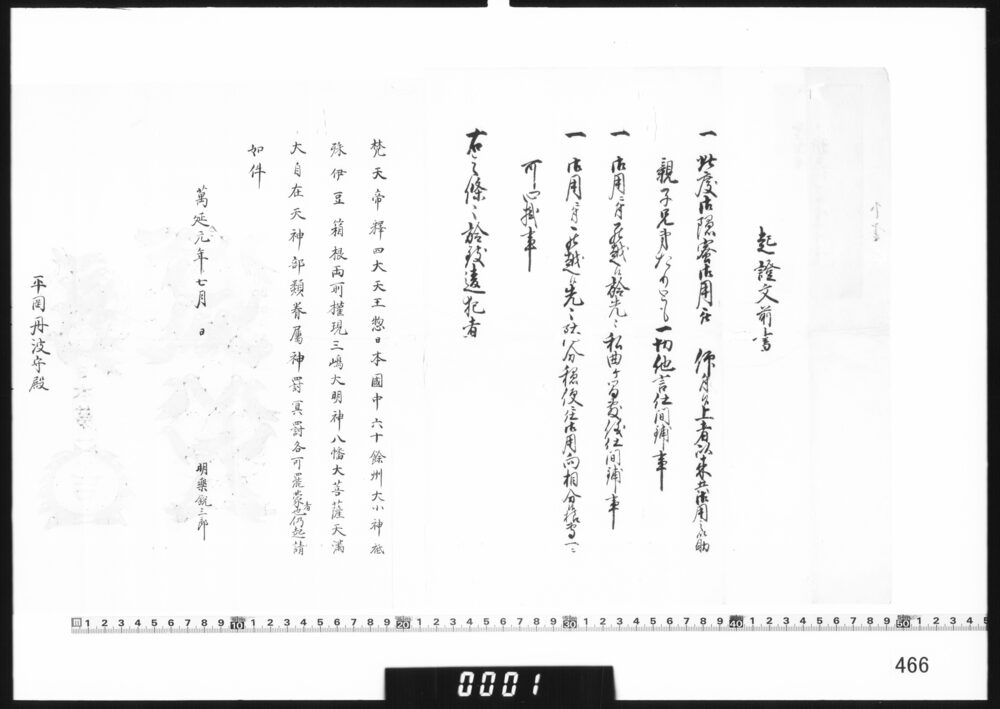 起證文前書
一 此度御隠密御用
親子兄弟たりとも一切他言仕間鋪事
一 御用ニ付罷越候於先々私曲ヶ間敷儀仕間鋪事
一 御用ニ付罷越候先々 穏便 御用向相
可心掛事
右之條々於致違犯者
梵天帝釋四大天王惣日本國中六十餘州大小神祇
殊伊豆箱根両所權現三嶋大明神八幡大菩薩天満
大自在天神部類眷属神罰冥罰各可罷蒙者也仍起請
如件
萬延元年七月 日
明樂鋭三郎
平岡丹波守殿
1 2 3 4 5 6 7 8 9 10 1 2 3 4 5 6 7 8 9 20 1 2 3 4 5 6 7 8 9 30 1 2 3 4 5 6 7 8 9 40 1 2 3 4 5 6 7 8 9 50 1 2 3 4 5
466
0001